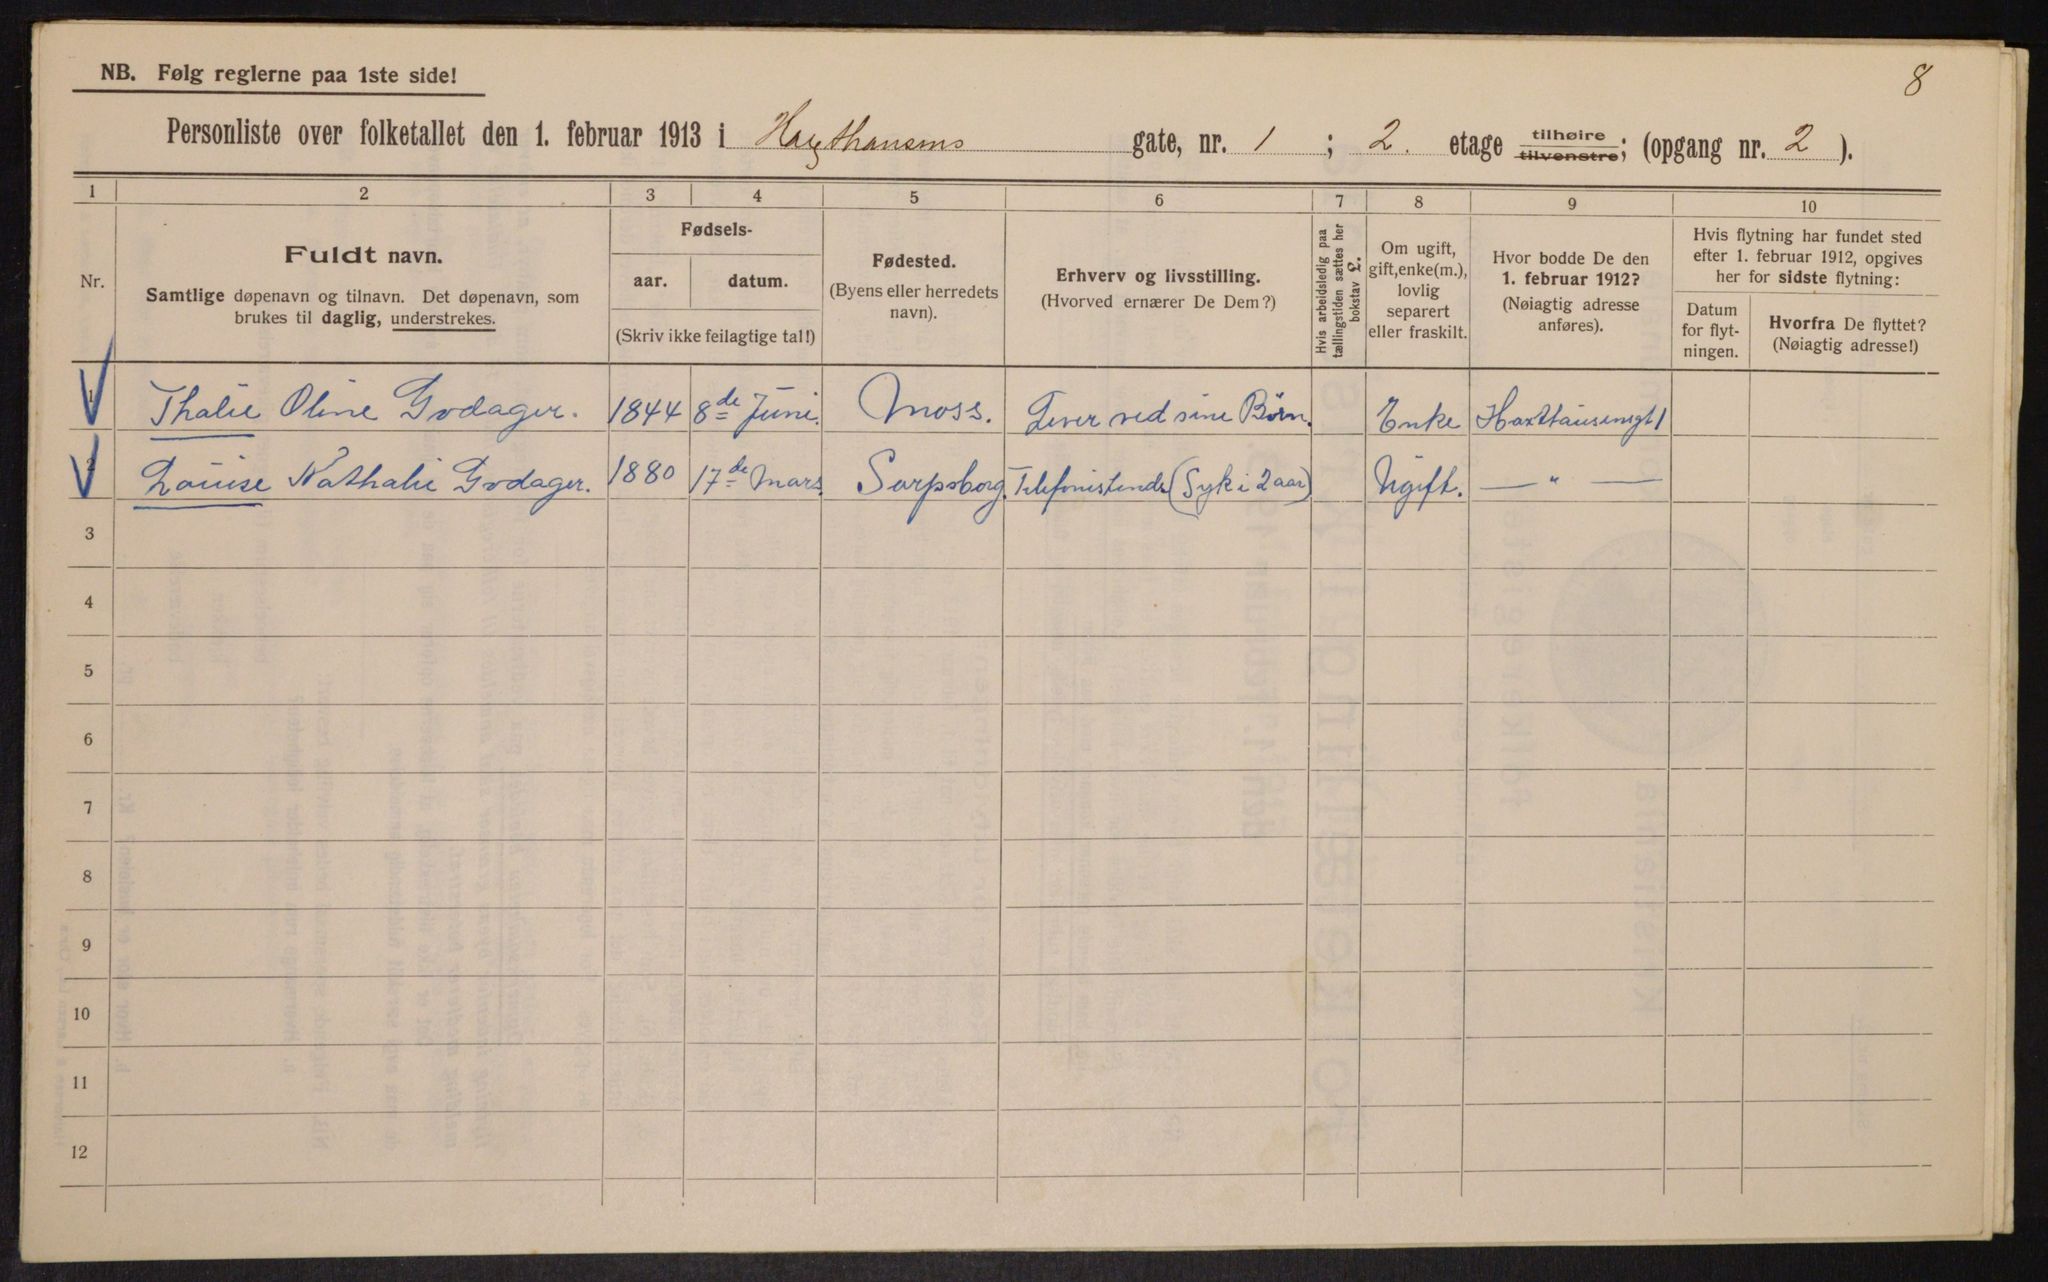 8
NB. Følg reglerne paa 1ste side!
Personliste over folketallet den 1. februar 1913 i Haxthausens gate, nr. 1 ; 2. etage tilhøire tilvenstre; (opgang nr. 2 ).
1 2 3 4 5 6 7 8 9 10
Nr.
Fuldt navn.
Samtlige døpenavn og tilnavn. Det døpenavn, som
brukes til daglig, understrekes.
Fødsels-
aar. datum.
(Skriv ikke feilagtige tal!)
Fødested.
(Byens eller herredets
navn).
Erhverv og livsstilling.
(Hvorved ernærer De Dem?)
Hvis arbeidsledig paa
tællingstiden sættes her
bokstav L.
Om ugift,
gift, enke(m.),
lovlig
separert
eller fraskilt.
Hvor bodde De den
1. februar 1912?
(Nøiagtig adresse
anføres).
Hvis flytning har fundet sted
efter 1. februar 1912, opgives
her for sidste flytning:
Datum
for flyt-
ningen.
Hvorfra De flyttet?
(Nøiagtig adresse!)
1 Thalie Oline Godager. 1844 8de Juni. Moss. Lever ved sine Børn. Enke Haxthausensgt 1
2 Louise Nathalie Godager. 1880 17de Mars. Sarpsborg. Telefonistinde (Syk i 2 aar) Ugift. — " —
3
4
5
6
7
8
9
10
11
12